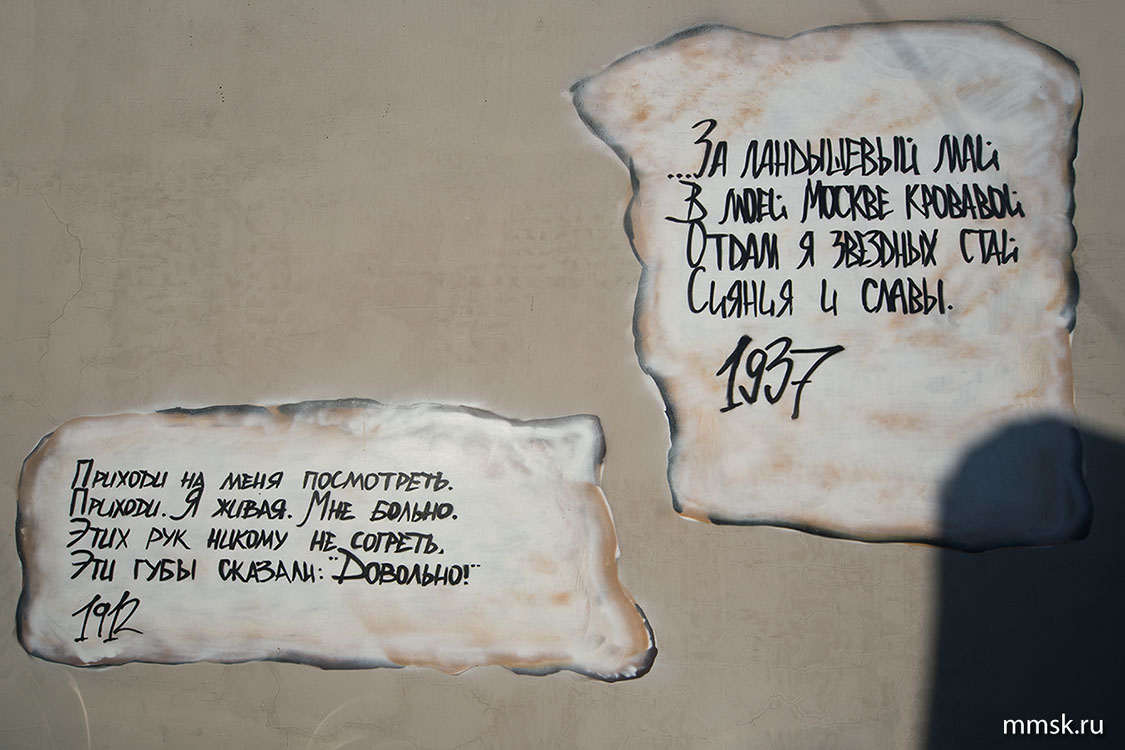 ...За ландышевый май
В моей Москве кровавой
Отдам я звездных стай
Сияния и славы.
1937
Приходи на меня посмотреть.
Приходи. Я живая. Мне больно.
Этих рук никому не согреть,
Эти губы сказали: "Довольно!"
1912
mmsk.ru